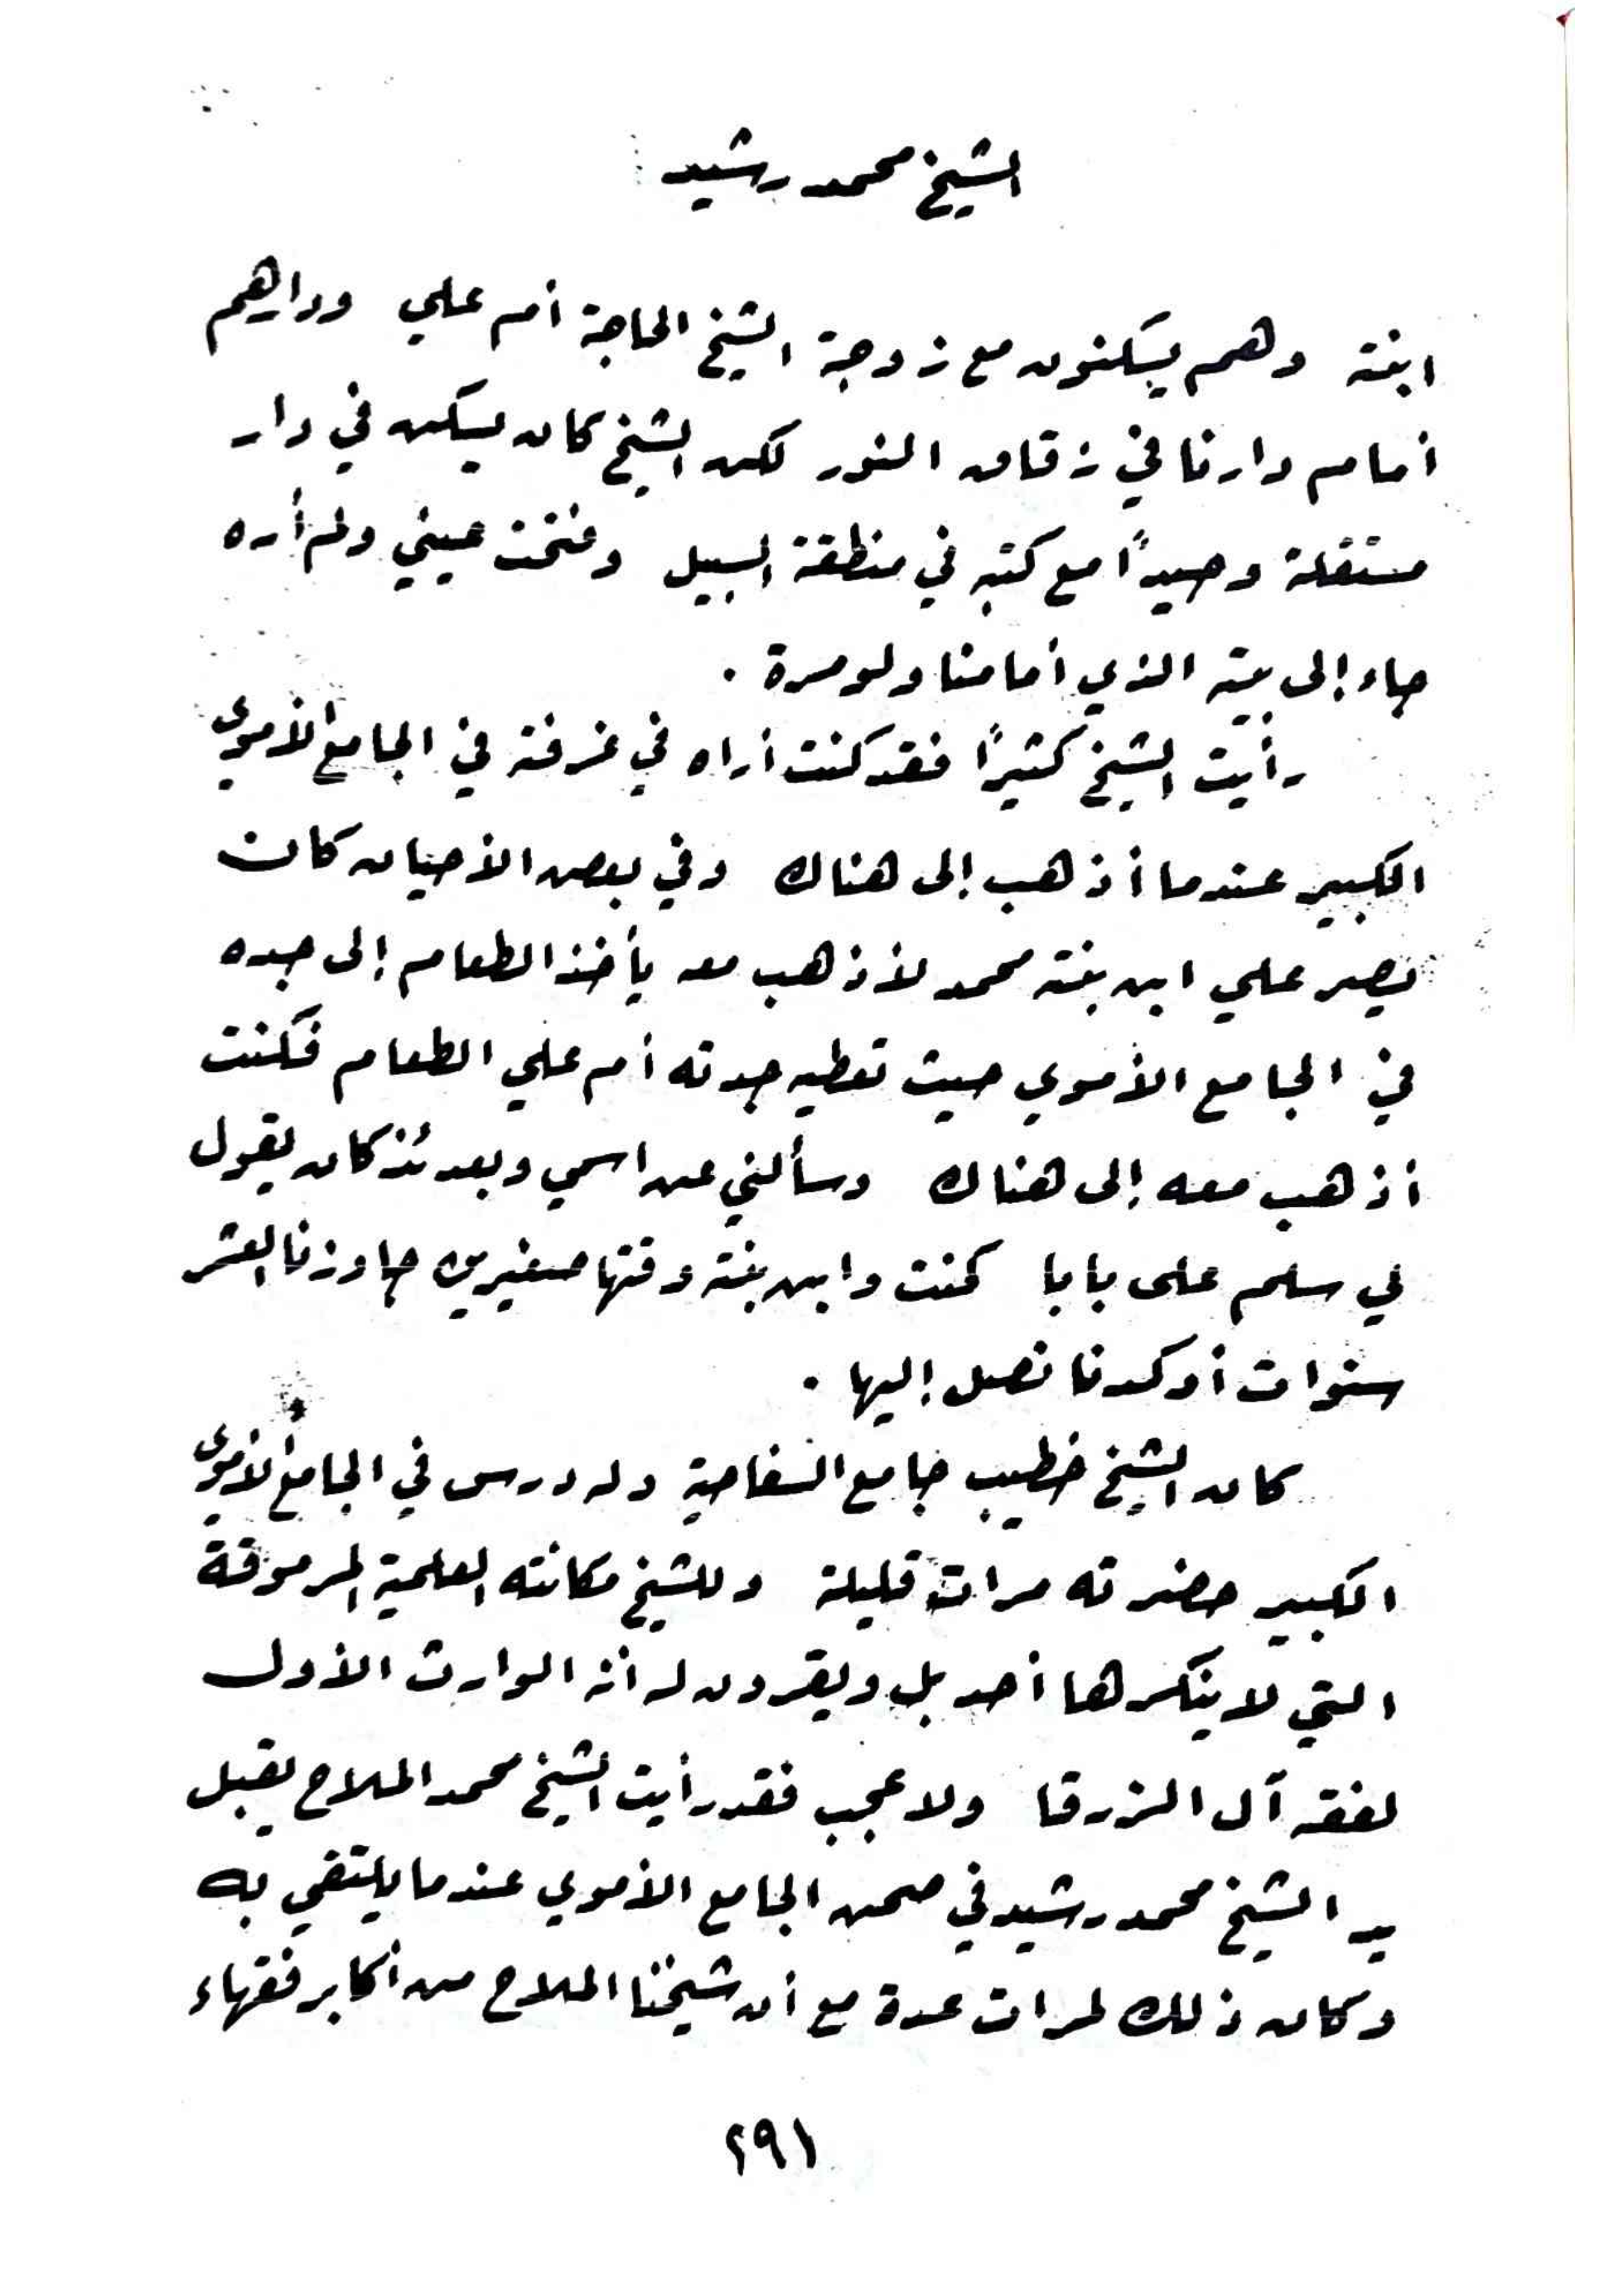 الشيخ محمد رشيد
ابنته وهم يسكنون مع زوجة الشيخ الحاجة أم علي ودارهم
أمام دارنا في زقاق النور لكن الشيخ كان يسكن في دار
مستقلة وحيداً مع كتبه في منطقة السبيل وفتحت عيني ولم أره
جاء إلى بيته الذي أمامنا ولو مرة .
رأيت الشيخ كثيراً فقد كنت أراه في غرفته في الجامع الأموي
الكبير عندما أذهب إلى هناك وفي بعض الأحيان كان
يصر علي ابن بنته محمد لأذهب معه يأخذ الطعام إلى جده
في الجامع الأموي حيث تعطيه جدته أم علي الطعام فكنت
أذهب معه إلى هناك وسألني عن اسمي وبعدئذ كان يقول
لي سلم على بابا كنت وابن بنته وقتها صغيرين جاوزنا العشر
سنوات أو كدنا نصل إليها .
كان الشيخ خطيب جامع السفاحية وله درس في الجامع الأموي
الكبير حضرته مرات قليلة وللشيخ مكانته العلمية المرموقة
التي لا ينكرها أحد بل ويقرون له أنه الوارث الأول
لفقه آل الزرقا ولا عجب فقد رأيت الشيخ محمد الملاح يقبل
يد الشيخ محمد رشيد في صحن الجامع الأموي عندما يلتقي به
وكان ذلك لمرات عدة مع أن شيخنا الملاح من أكابر فقهاء
٢٩١